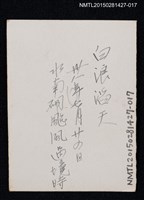 NMTL20150281427-017
白浪滔天
年七月廿の日
水南胡颱風過境時
NMTL20150281427-017